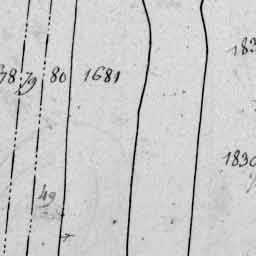 78 79 80 1681
1830
49